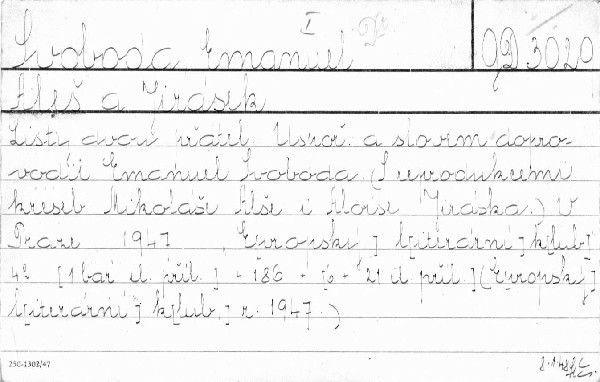 I
Svoboda Emanuel Dr
QD 3020
Aleš a Jirásek
Listy dvou přátel. Uspoř. a slovem dopro-
vodil Emanuel Svoboda. (S reprodukcemi
kreseb Mikoláše Alše i Aloise Jiráska.) V
Praze 1947, Evropský l[iterární] k[lub]
4° [1 bar il. příl.] - 186 - [6 + 21 il. příl.] (Evropský
l[iterární] k[lub.] r. 1947.)
250-1302/47